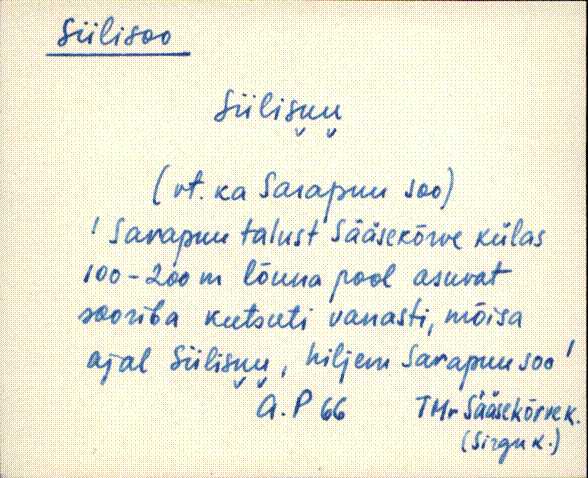 Siilisoo
Siilisu̬u̬
(vt. ka Sarapuu soo)
' Sarapuu talust Sääsekõrve külas
100-200 m lõuna pool asuvat
sooriba kutsuti vanasti, mõisa
ajal Siilisu̬u̬, hiljem Sarapuu soo '
A. P 66 TMr Sääsekõrve k.
(Sirgu k.)